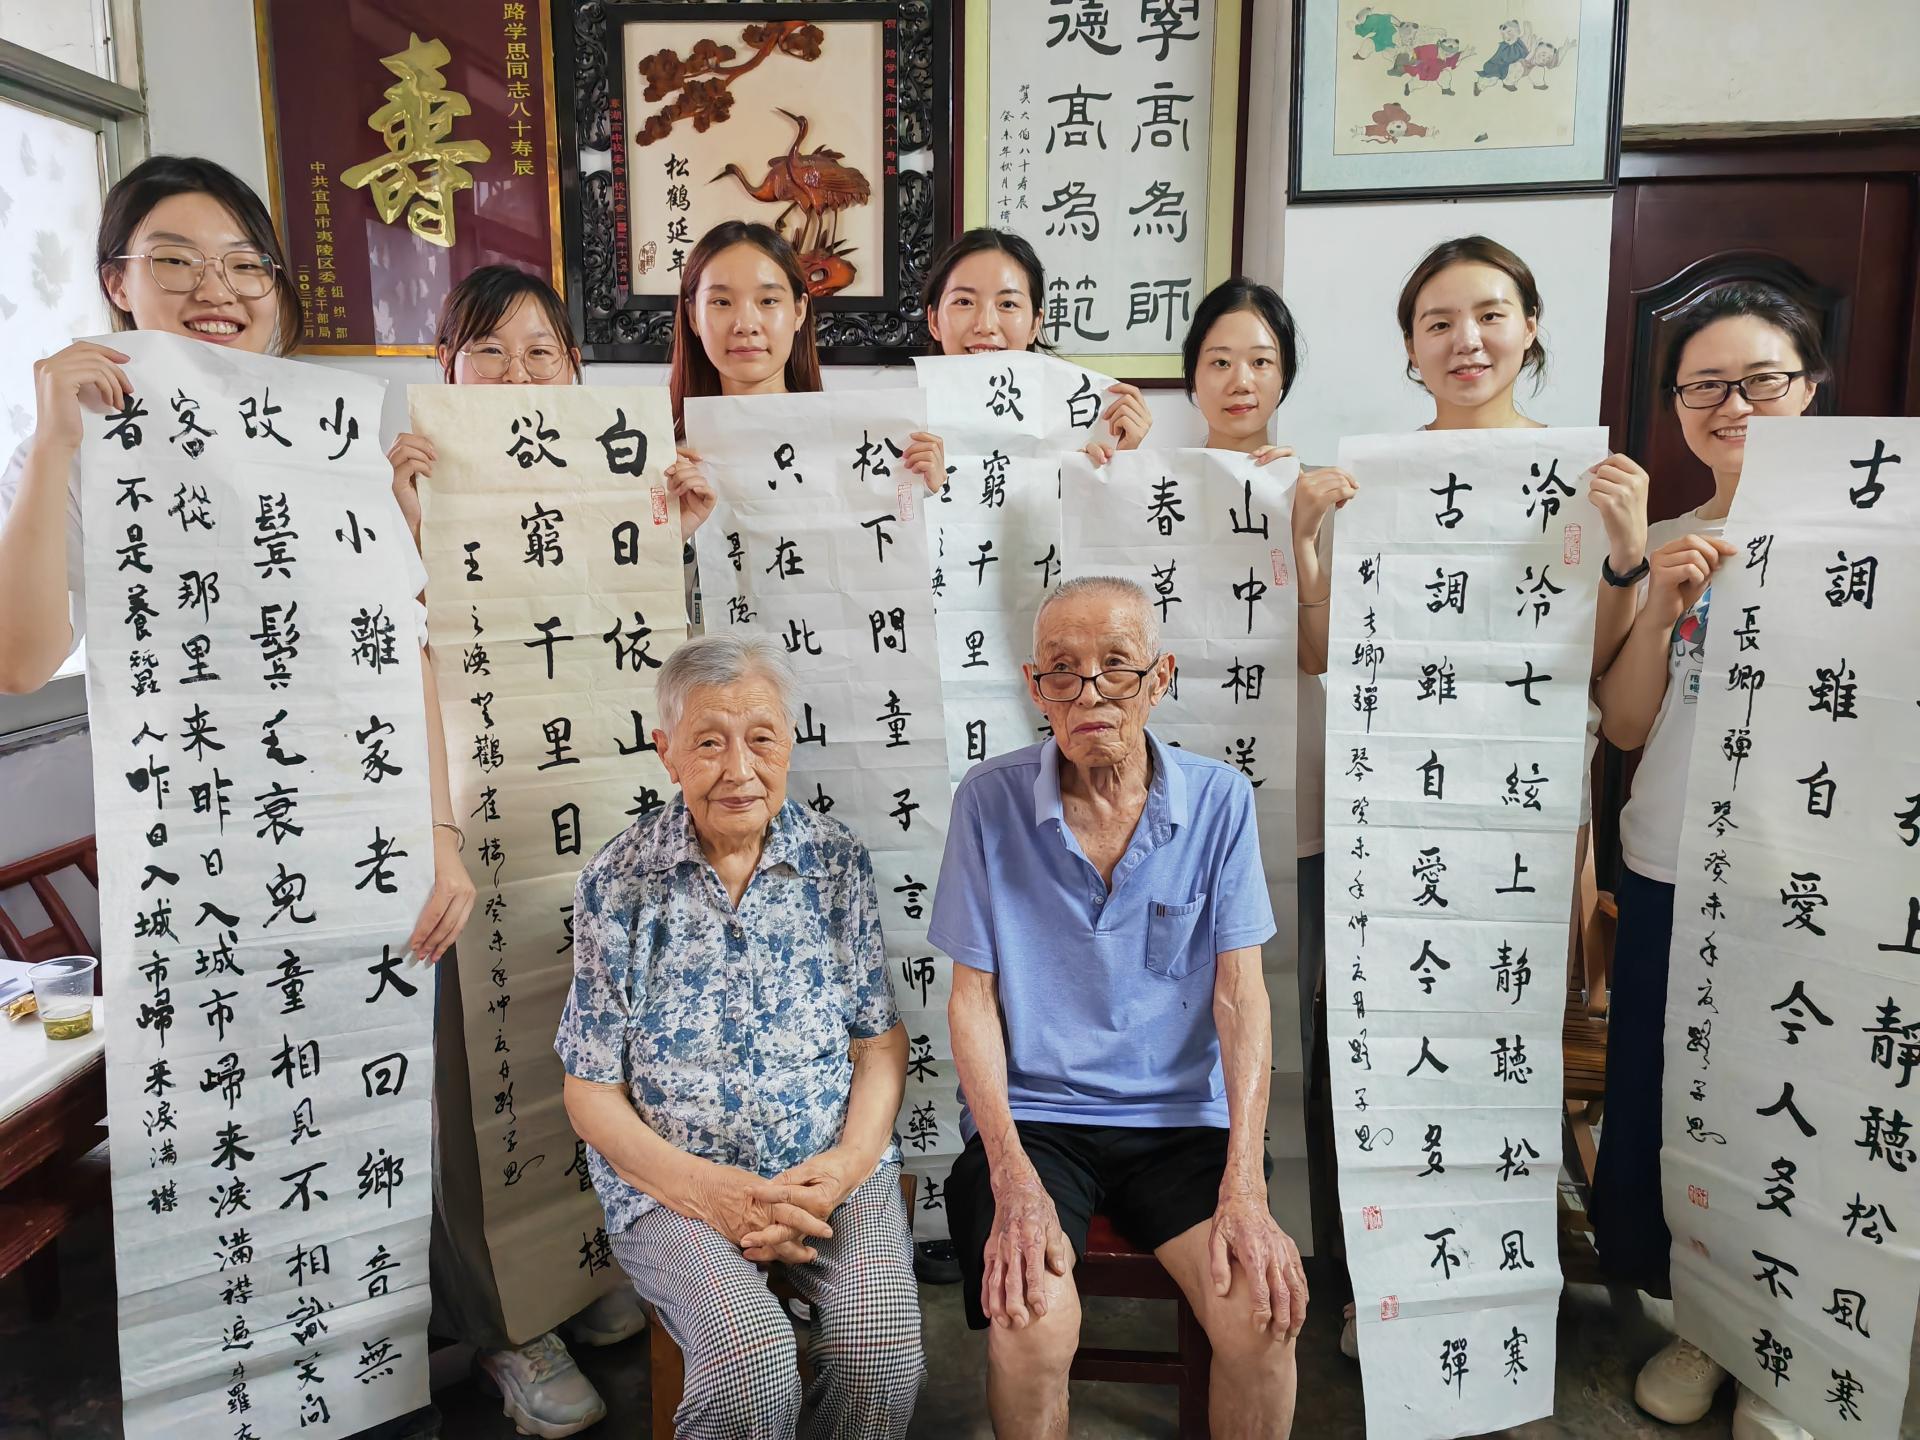 路学思同志八十寿辰
壽
中共宜昌市夷陵区委组织部
老干部局
二00三年十二月
贺：路学思老师八十寿辰
松鶴延年
學高為師
德高為範
賀大伯八十寿辰
癸未年秋月
少小離家老大回鄉音無
改鬢鬢毛衰兒童相見不相識笑问
客從那里来昨日入城市歸来淚滿襟遍身羅衣
者不是養蠶人昨日入城市歸来淚满襟
白日依山
欲窮千里目
樓
王之渙登鸛雀樓癸未年仲夏月路学思
松下問童子言师采藥去
只在此山中
尋隐
白日依
欲窮千里目
王之渙
山中相送
春草
泠泠七絃上靜聽松風寒
古調雖自愛今人多不彈
劉长卿彈琴癸未年仲夏月路学思
上靜聽松風寒
古調雖自愛今人多不彈
劉長卿彈琴癸未年夏路学思